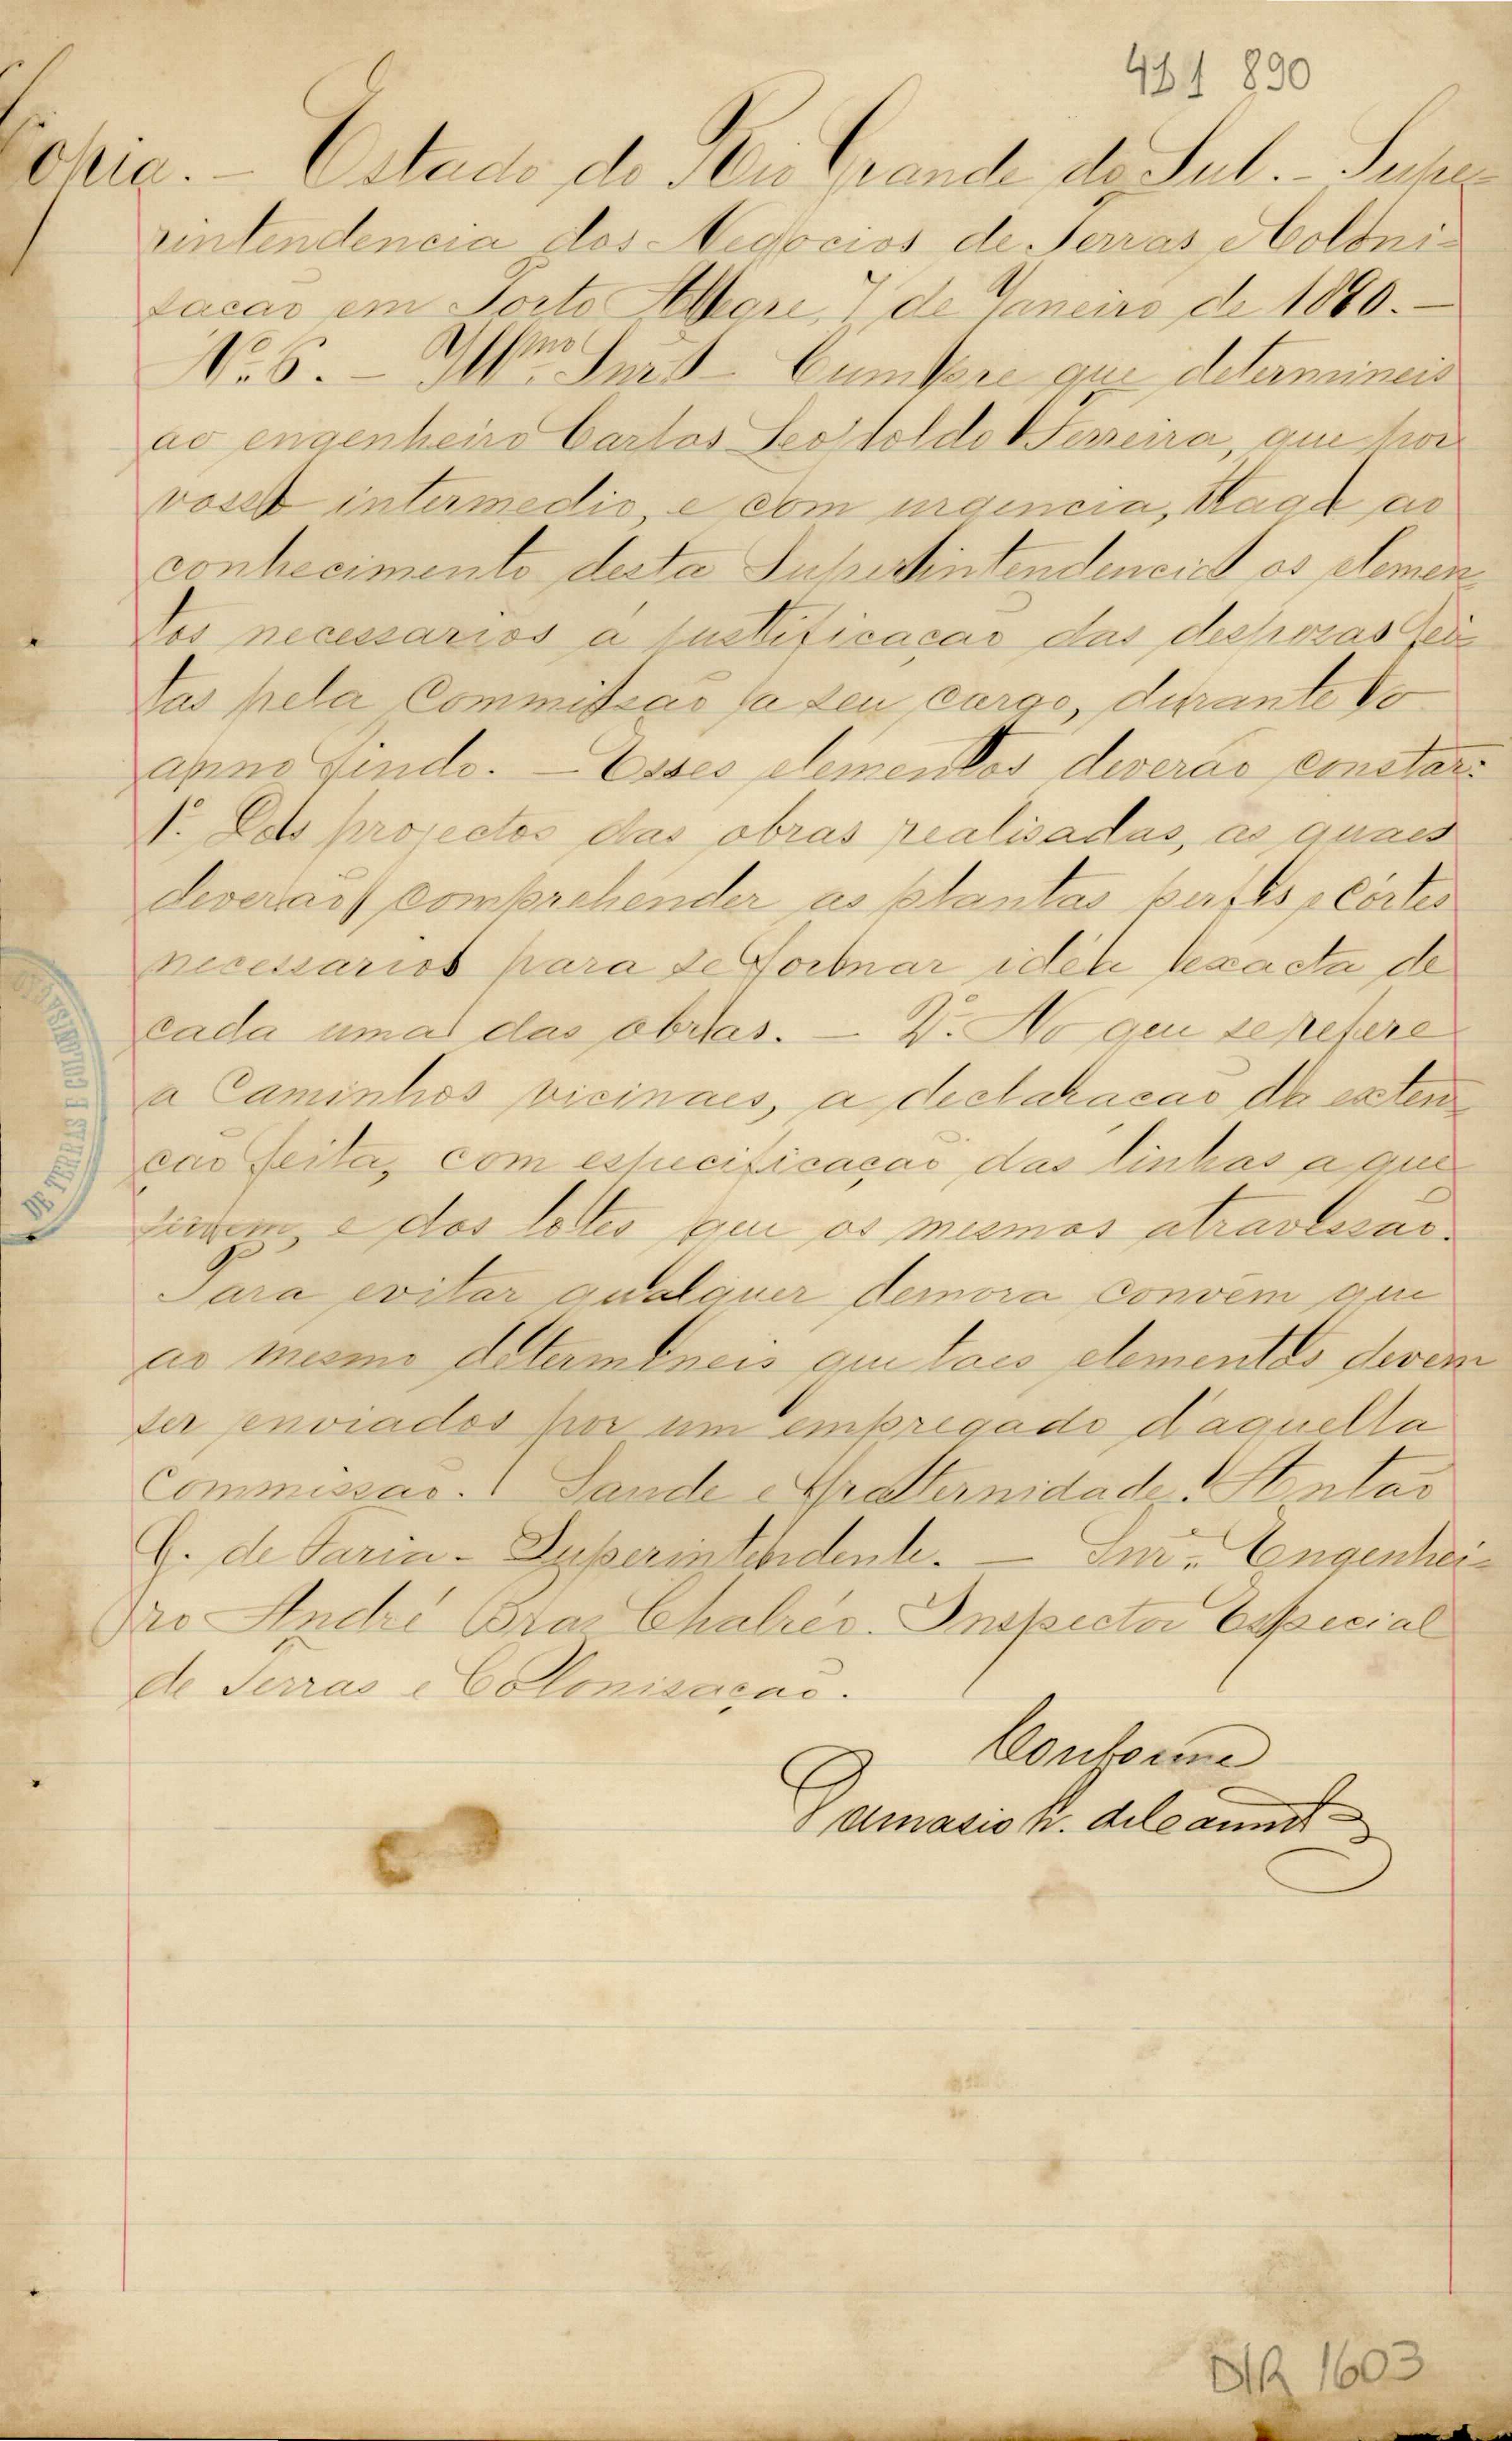 481 890
Cópia. - Estado do Rio Grande do Sul. - Supe-
rintendencia dos Negocios de Terras e Coloni-
sacão em Porto Alegre, 7 de Janeiro de 1890. -
Nº 6. - Illmo Snr - Cumpre que determineis
ao engenheiro Carlos Leopoldo Ferreira, que por
vosso intermedio, e com urgencia, traga ao
conhecimento desta Superintendencia os elemen-
tos necessarios á justificação das despezas fei-
tas pela Commissão a seu cargo, durante o
anno findo. - Esses elementos deverão constar:
1º Dos projectos das obras realisadas, os quaes
deverão comprehender as plantas perfis e córtes
necessarios para se formar idéa exacta de
cada uma das obras. - 2º No que se refere
a Caminhos vicinaes, a declaracão da exten
ção feita, com especificação das linhas a que
servem, e dos lotes que os mesmos atravessão.
Para evitar qualquer demora convém que
ao mesmo determineis que taes elementos devem
ser enviados por um empregado d'aquella
Commissão. Saude e Fraternidade. Antão
G. de Faria - Superintendente. - Snr. Engenhei-
ro André Bras Chalréo. Inspector Especial
de Terras e Colonisação.
Conforme
Damasio
DIR 1603
DE TERRAS E COLONISAÇÃO